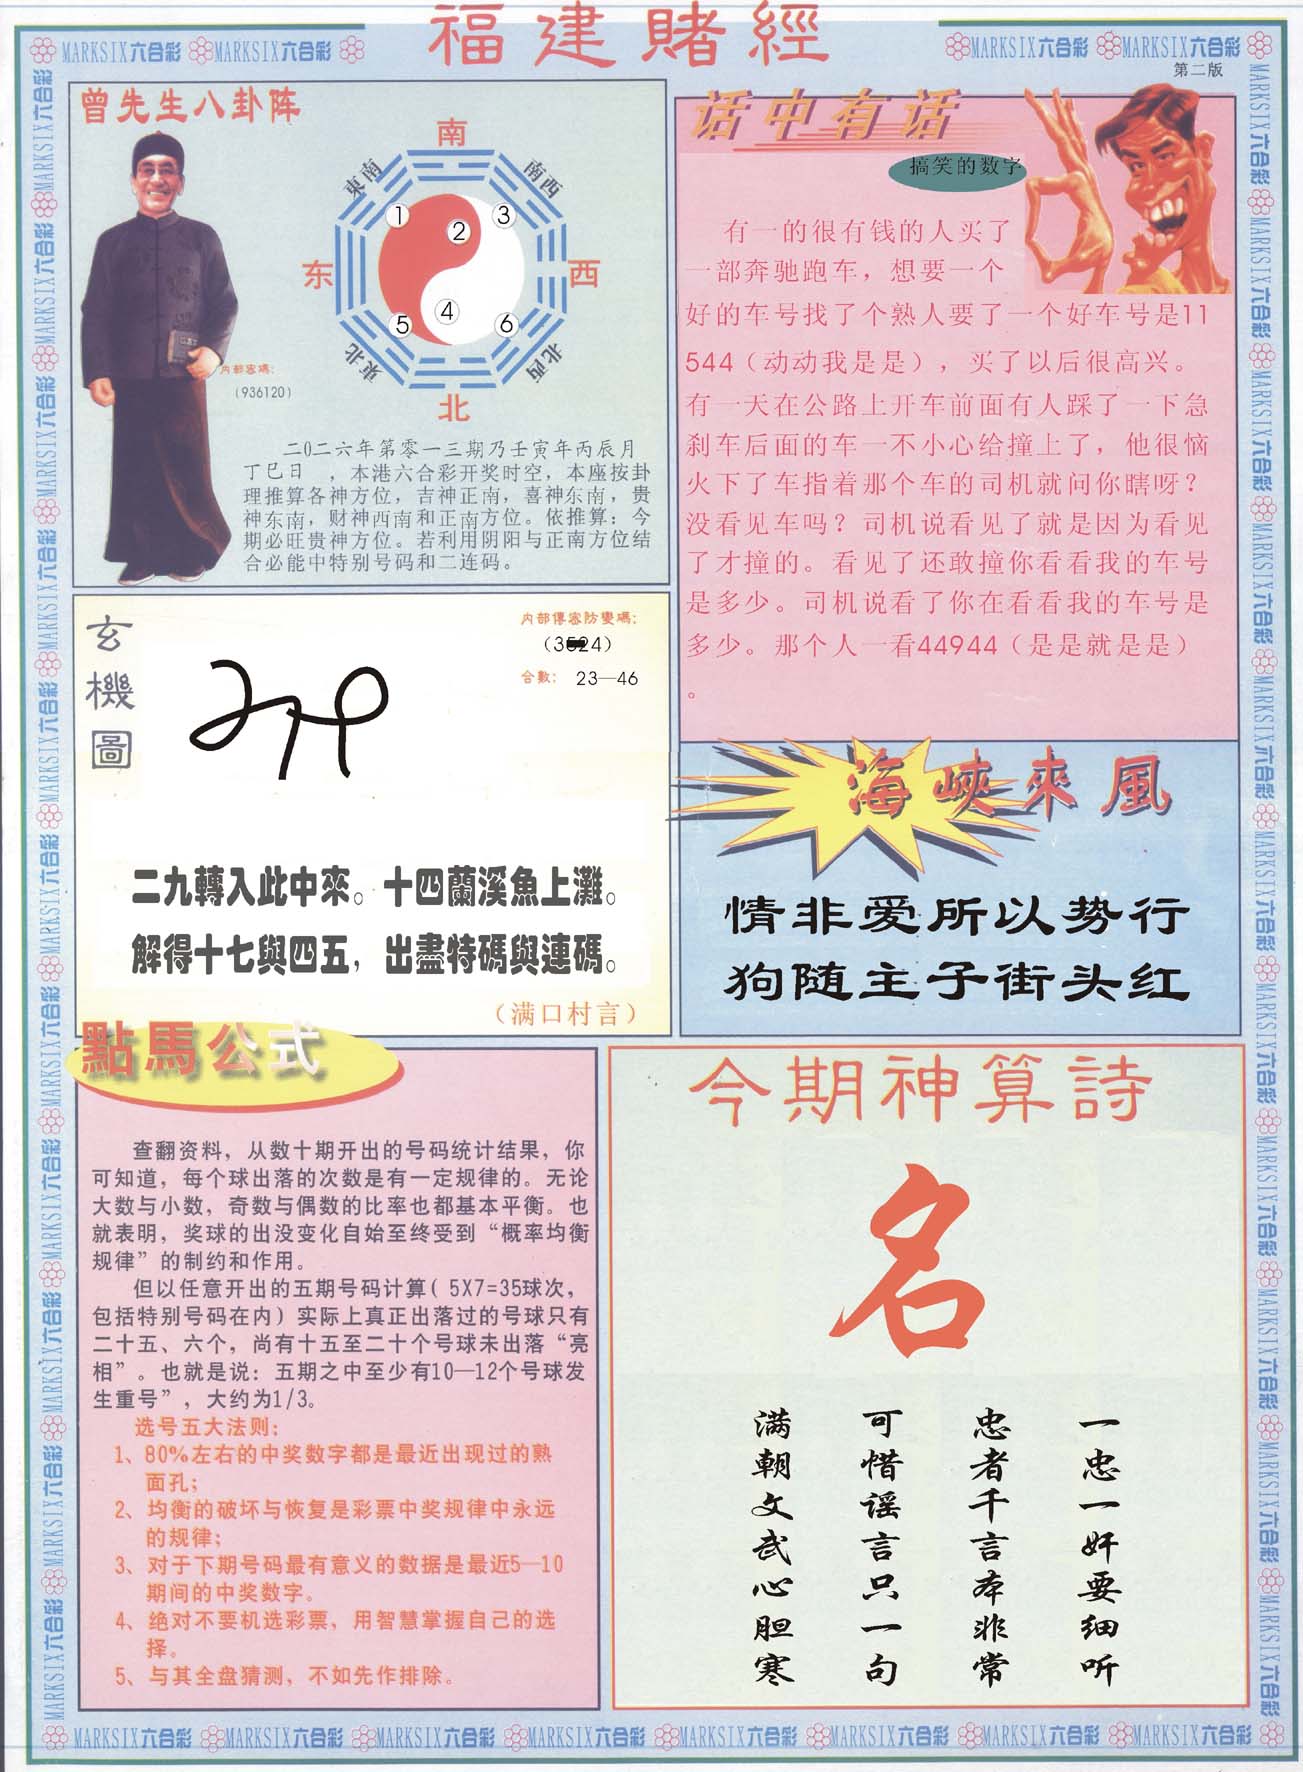 福建賭經
MARKSIX六合彩 MARKSIX六合彩
MARKSIX六合彩 MARKSIX六合彩
第二版
曾先生八卦阵
南
東南
南西
1
2
3
东
西
4
5
6
東北
北西
北
内部密碼:
(936120)
二〇二六年第零一三期乃壬寅年丙辰月
丁巳日 ，本港六合彩开奖时空，本座按卦
理推算各神方位，吉神正南，喜神东南，贵
神东南，财神西南和正南方位。依推算：今
期必旺贵神方位。若利用阴阳与正南方位结
合必能中特别号码和二连码。
话中有话
搞笑的数字
有一的很有钱的人买了
一部奔驰跑车，想要一个
好的车号找了个熟人要了一个好车号是11
544（动动我是是），买了以后很高兴。
有一天在公路上开车前面有人踩了一下急
刹车后面的车一不小心给撞上了，他很恼
火下了车指着那个车的司机就问你瞎呀？
没看见车吗？司机说看见了就是因为看见
了才撞的。看见了还敢撞你看看我的车号
是多少。司机说看了你在看看我的车号是
多少。那个人一看44944（是是就是是）
。
玄機圖
内部傳密防變碼:
合數: 23—46
二九轉入此中來。十四蘭溪魚上灘。
解得十七與四五，出盡特碼與連碼。
（满口村言）
海峽來風
情非爱所以势行
狗随主子街头红
點馬公式
查翻资料，从数十期开出的号码统计结果，你
可知道，每个球出落的次数是有一定规律的。无论
大数与小数，奇数与偶数的比率也都基本平衡。也
就表明，奖球的出没变化自始至终受到“概率均衡
规律”的制约和作用。
但以任意开出的五期号码计算( 5X7=35球次，
包括特别号码在内）实际上真正出落过的号球只有
二十五、六个，尚有十五至二十个号球未出落“亮
相”。也就是说：五期之中至少有10—12个号球发
生重号”，大约为1/3。
选号五大法则：
1、80%左右的中奖数字都是最近出现过的熟
面孔；
2、均衡的破坏与恢复是彩票中奖规律中永远
的规律；
3、对于下期号码最有意义的数据是最近5—10
期间的中奖数字。
4、绝对不要机选彩票，用智慧掌握自己的选
择。
5、与其全盘猜测，不如先作排除。
今期神算詩
名
一忠一奸要细听
忠者千言本非常
可惜谣言只一句
满朝文武心胆寒
MARKSIX六合彩 MARKSIX六合彩 MARKSIX六合彩 MARKSIX六合彩 MARKSIX六合彩 MARKSIX六合彩 MARKSIX六合彩 MARKSIX六合彩